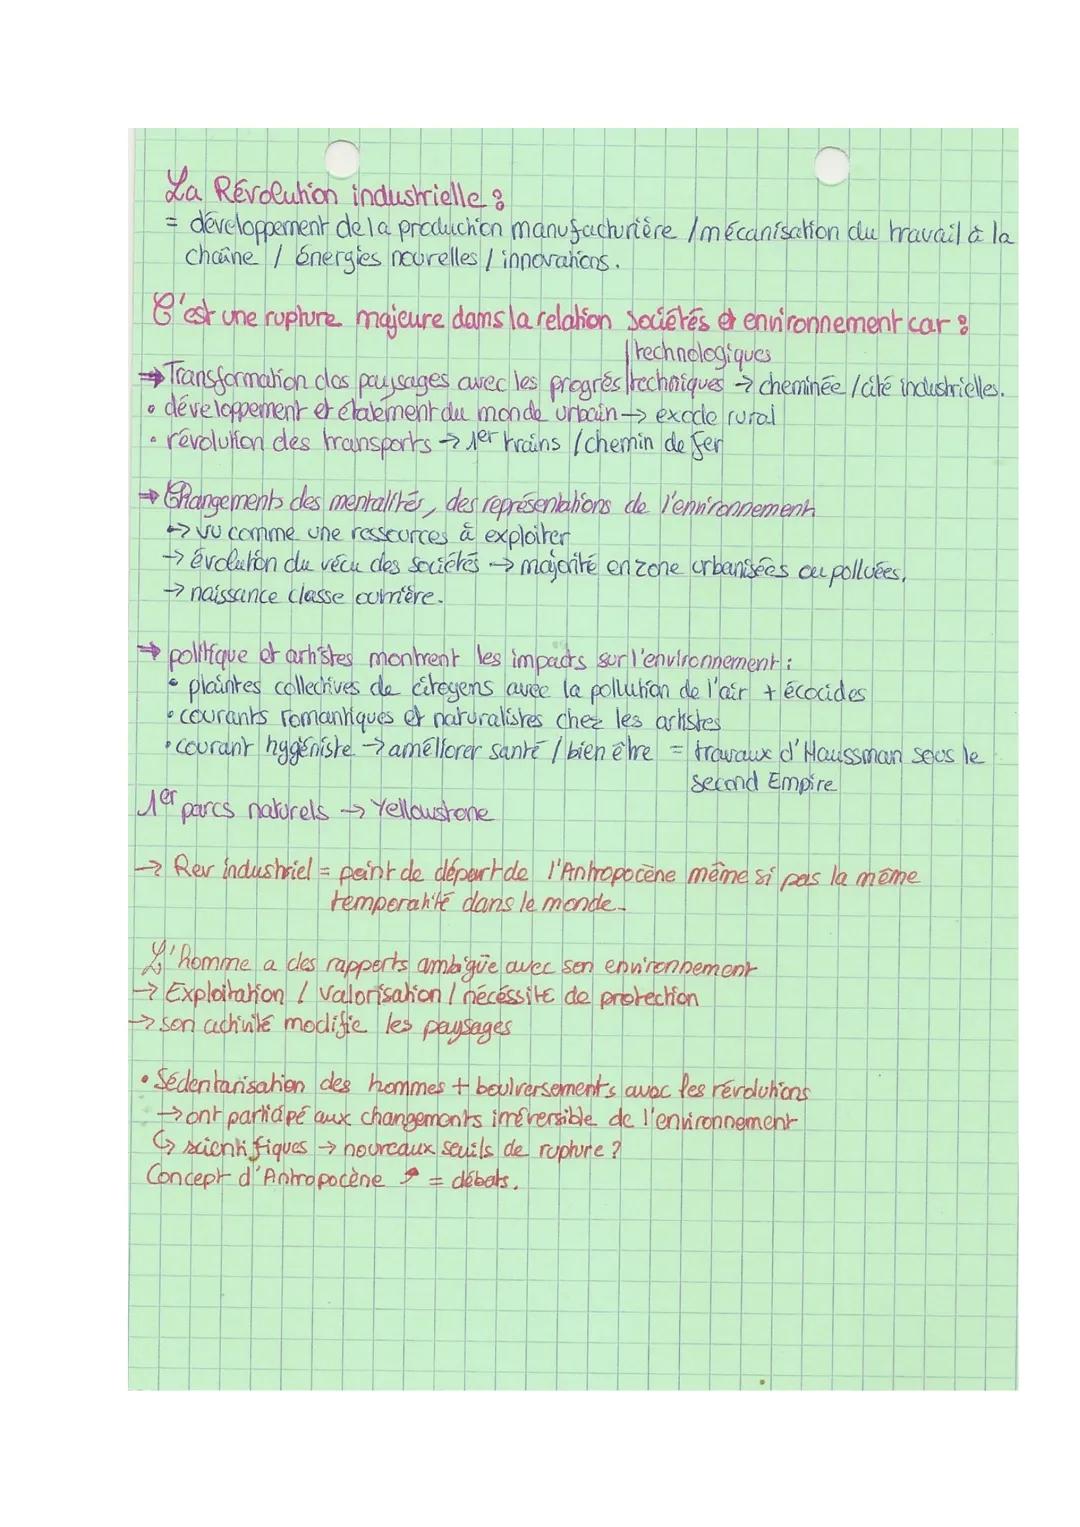 La Révolution industrielle :
= développement de la production manufacturière / mécanisation du travail à la
chaîne / énergies nouvelles / innovations.
C'est une rupture majeure dans la relation sociétés et environnement car :
technologiques
⇒ Transformation des paysages avec les progrés techniques → cheminée / cité industrielles.
• développement et étalement du monde urbain → exode rural
• révolution des transports → 1er trains / chemin de fer
⇒ Changements des mentalités, des représentations de l'environnement
→ vu comme une ressources à exploiter
→ évolution du vécu des sociétés → majorité en zone urbanisées ou polluées,
→ naissance classe ouvrière.
⇒ politique et artistes montrent les impacts sur l'environnement :
• plaintes collectives de citoyens avec la pollution de l'air + écocides
• courants romantiques et naturalistes chez les artistes
• courant hygéniste → améliorer santé / bien être = travaux d'Haussman sous le
second Empire
1er parcs naturels → Yellowstone
→ Rev industriel = point de départ de l'Anthropocène même si pas la même
temporalité dans le monde.
L'homme a des rapports ambigüe avec son environnement
→ Exploitation / valorisation / nécéssité de protection
→ son activité modifie les paysages
• Sédentarisation des hommes + boulversements avec les révolutions
→ ont participé aux changements irréversible de l'environnement
↪ scientifiques → nouveaux seuils de rupture ?
Concept d'Antropocène ↗ = débats.